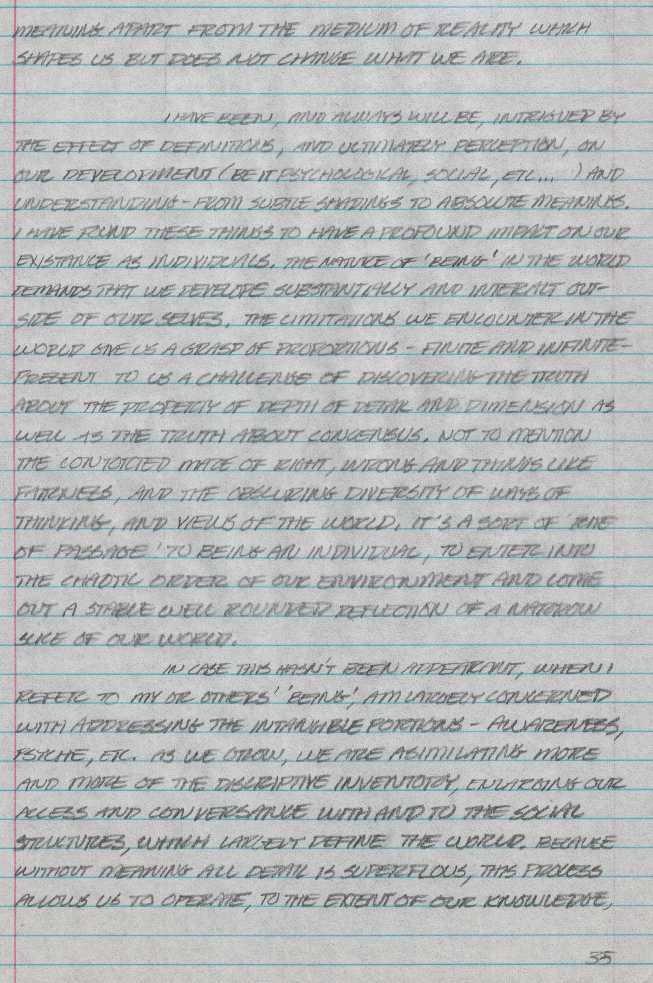 MEANING APART FROM THE MEDIUM OF REALITY WHICH
SHAPES US BUT DOES NOT CHANGE WHAT WE ARE.
I HAVE BEEN, AND ALWAYS WILL BE, INTRIGUED BY
THE EFFECT OF DEFINITIONS, AND ULTIMATELY PERCEPTION, ON
OUR DEVELOPMENT (BE IT PSYCHOLOGICAL, SOCIAL, ETC... ) AND
UNDERSTANDING - FROM SUBTLE SHADINGS TO ABSOLUTE MEANINGS.
I HAVE FOUND THESE THINGS TO HAVE A PROFOUND IMPACT ON OUR
EXISTANCE AS INDIVIDUALS. THE NATURE OF 'BEING' IN THE WORLD
DEMANDS THAT WE DEVELOPE SUBSTANTIALLY AND INTERACT OUT-
SIDE OF OUR SELVES. THE LIMITATIONS WE ENCOUNTER IN THE
WORLD GIVE US A GRASP OF PROPORTIONS - FINITE AND INFINITE -
PRESENT TO US A CHALLENGE OF DISCOVERING THE TRUTH
ABOUT THE PROPERTY OF DEPTH OF DETAIL AND DIMENSION AS
WELL AS THE TRUTH ABOUT CONCENSUS. NOT TO MENTION
THE CONTORTED MAZE OF RIGHT, WRONG AND THINGS LIKE
FAIRNESS, AND THE OBSCURING DIVERSITY OF WAYS OF
THINKING, AND VIEWS OF THE WORLD. IT'S A SORT OF 'RITE
OF PASSAGE' TO BEING AN INDIVIDUAL, TO ENTER INTO
THE CHAOTIC ORDER OF OUR ENVIRONMENT AND COME
OUT A STABLE WELL ROUNDED REFLECTION OF A NARROW
SLICE OF OUR WORLD.
IN CASE THIS HASN'T BEEN APPEARANT, WHEN I
REFER TO MY OR OTHERS' 'BEING', AM LARGELY CONCERNED
WITH ADDRESSING THE INTANGIBLE PORTIONS - AWARENESS,
PSYCHE, ETC. AS WE GROW, WE ARE ASIMILATING MORE
AND MORE OF THE DISCRIPTIVE INVENTORY, ENLARGING OUR
ACCESS AND CONVERSANCE WITH AND TO THE SOCIAL
STRUCTURES, WHICH LARGELY DEFINE THE WORLD. BECAUSE
WITHOUT MEANING ALL DETAIL IS SUPERFLOUS, THIS PROCESS
ALLOWS US TO OPERATE, TO THE EXTENT OF OUR KNOWLEDGE,
35